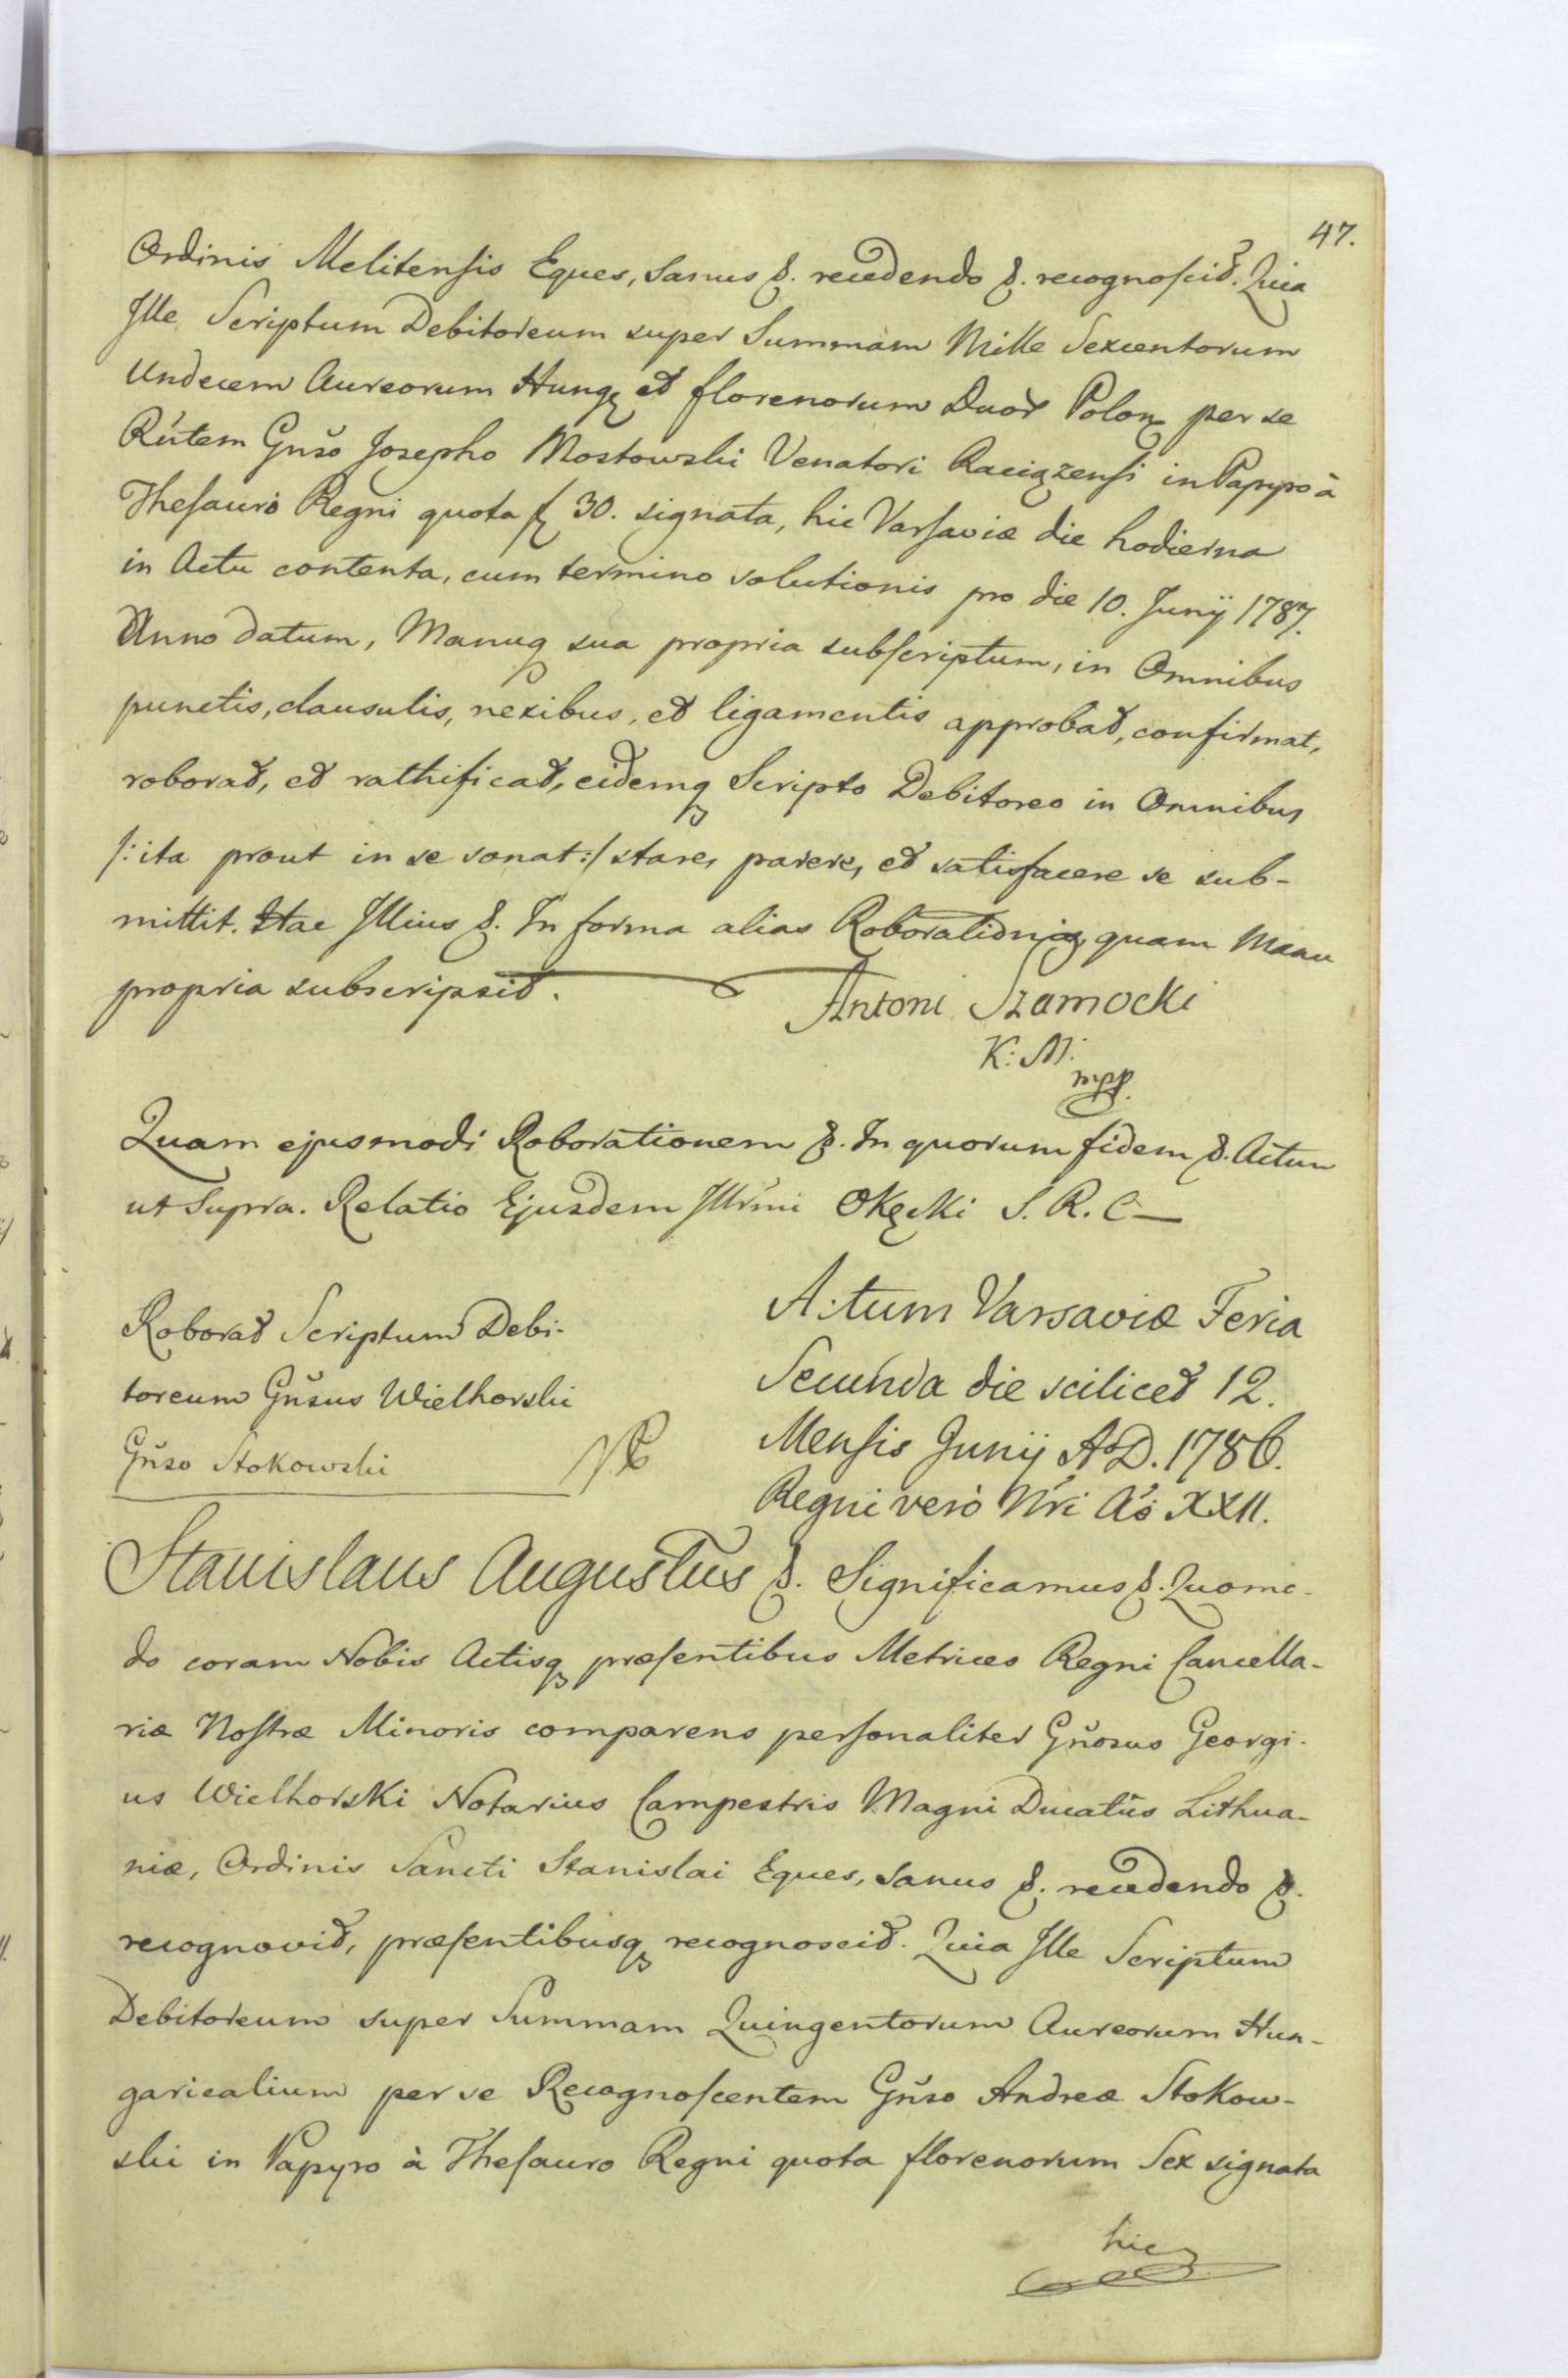 47.
Ordinis Melitensis Eques, Sanus &. recedendo &. recognoscit. Quia
Ille Scriptum Debitoreum super Summam Mille Sexcentorum
Undecem Aureorum Hung. et florenorum Duor Polon. per se
Rñtem Gñso Josepho Mostowski Venatori Raciązensi in Papyro à
Thesauro Regni quota f 30. signata, hic Varsaviæ die hodierna
in Actu contenta, cum termino solutionis pro die 10. Junij 1787.
Anno datum, Manuq sua propria subscriptum, in Omnibus
punctis, clausulis, nexibus, et ligamentis approbat, confirmat,
roborat, et rathificat, eidemq Scripto Debitoreo in Omnibus
/: ita prout in se sonat :/ stare, parere, et satisfacere se sub-
mittit. Hac Illius &. In forma alias Roborationis, quam Manu
propria subscripsit.
Antoni Szamocki
K: M:
mpp.
Quam ejusmodi Roborationem &. In quorum fidem &. Actum
ut Supra. Relatio Ejusdem Illrmi Okęcki S. R. C
Roborat Scriptum Debi-
toreum Gñsus Wielhorski
Gñso Stokowski
Actum Varsaviæ Feria
Secunda die scilicet 12.
Mensis Junij A°D. 1786.
Regni verò Nri A°ô XXII.
Stanislaus Augustus &. Significamus &. Quomo-
do coram Nobis Actisq præsentibus Metrices Regni Cancella-
riæ Nostræ Minoris comparens personaliter Gñosus Georgi-
us Wielhorski Notarius Campestris Magni Ducatûs Lithua-
niæ, Ordinis Sancti Stanislai Eques, Sanus &. recedendo &.
recognovit, præsentibusq recognoscit. Quia Ille Scriptum
Debitoreum super Summam Quingentorum Aureorum Hun-
garicalium per se Recognoscentem Gñso Andreæ Stokow-
ski in Papyro à Thesauro Regni quota florenorum Sex signata
hic